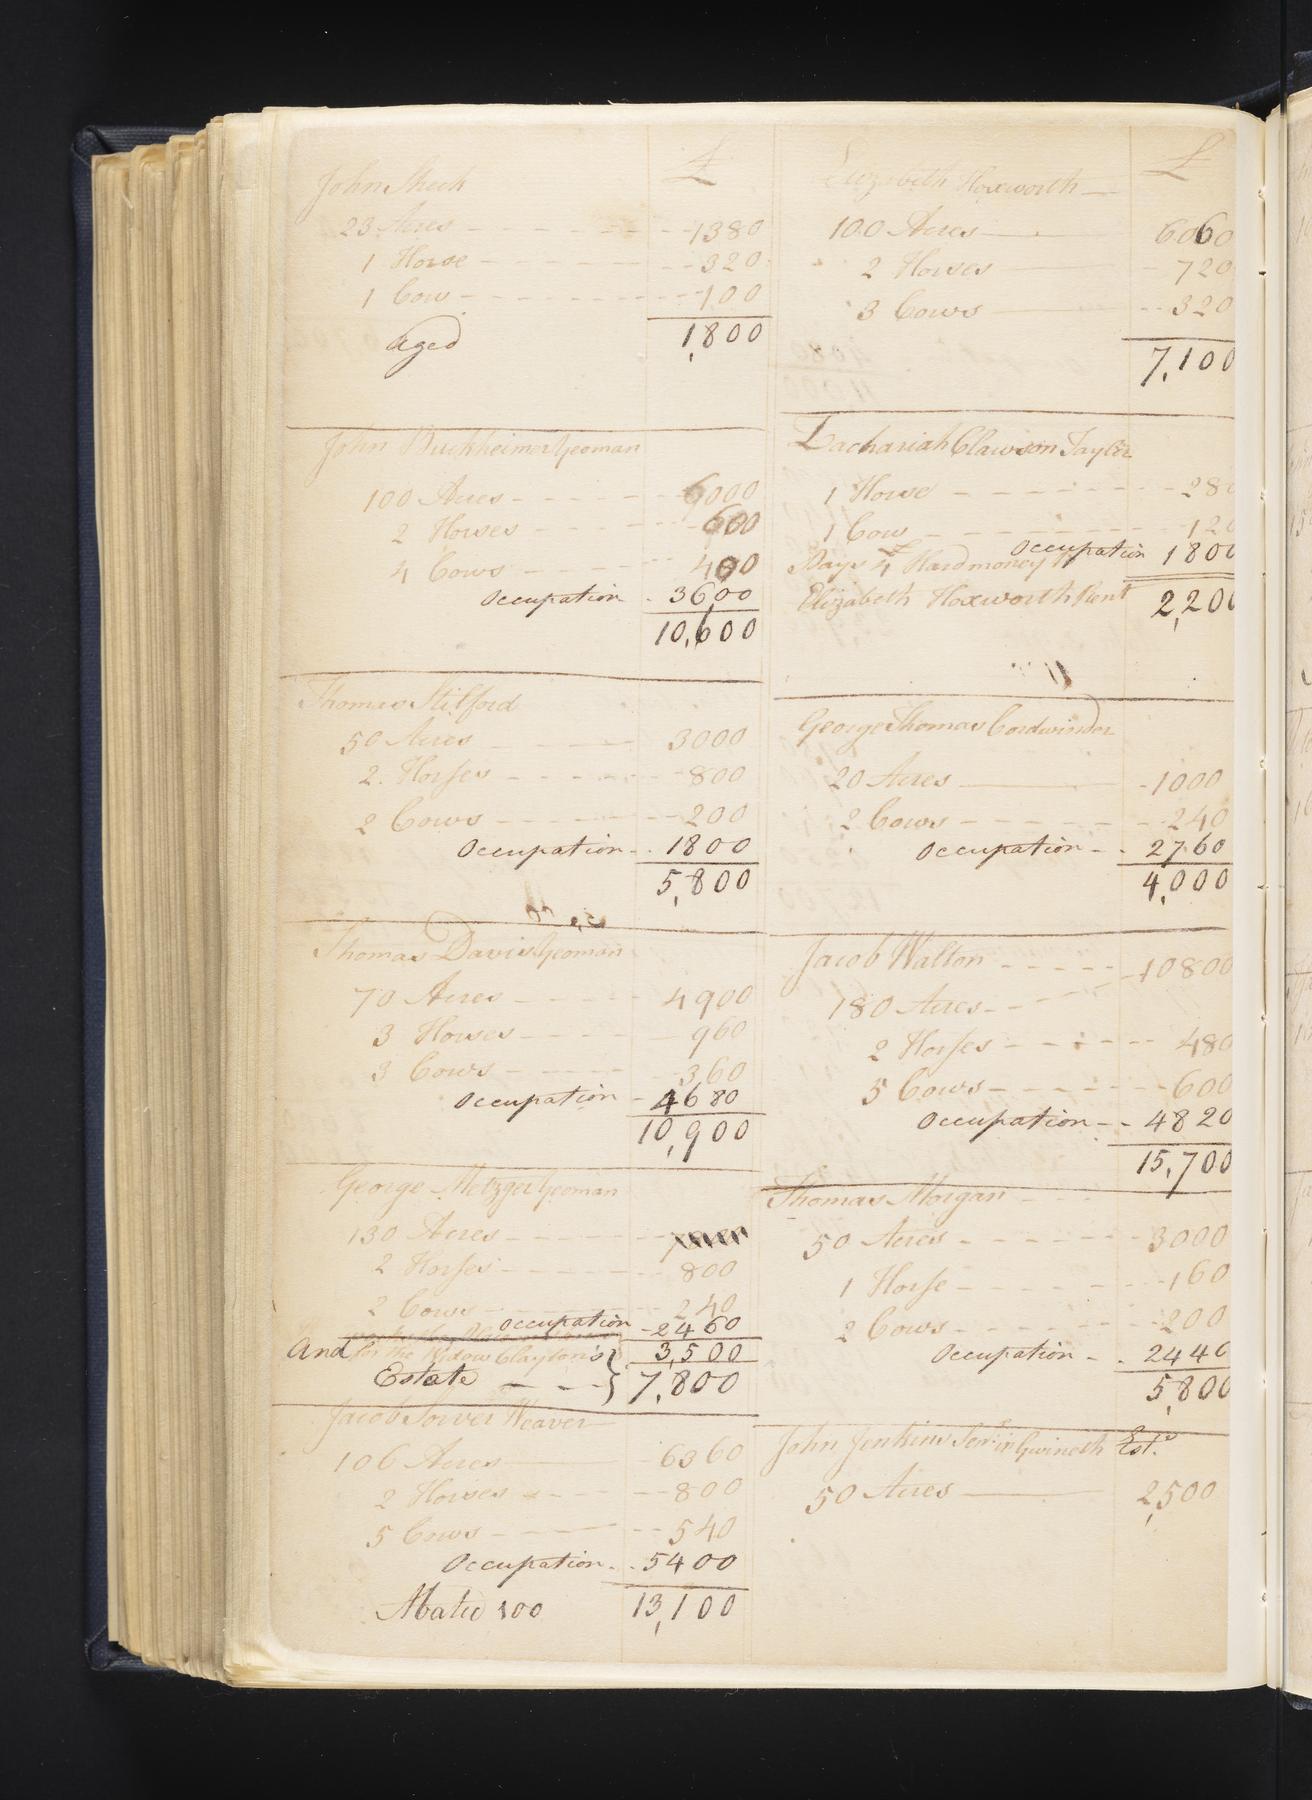 £
John Sheek
23 Acres - 1380
1 Horse - 320
1 Cow - 100
Aged 1,800
John Buckheimer Yeoman
100 Acres - 6000
2 Horses - 600
4 Cows - 400
Occupation - 3600
10,600
Thomas Stilford
50 Acres - 3000
2 Horses - 800
2 Cows - 200
Occupation - 1800
5,800
Thomas Davis Yeoman
70 Acres - 4900
3 Horses - 960
3 Cows - 360
Occupation - 4680
10,900
George Metzger Yeoman
130 Acres -
2 Horses - 800
2 Cows - 240
Occupation - 2460
3,500
And for the Widow Clayton's
Estate - 7,800
Jacob Sower Weaver
106 Acres 6360
2 Horses - 800
5 Cows - 540
Occupation - 5400
Abated 100 13,100
£
Elizabeth Hoxworth
100 Acres 6060
2 Horses 720
3 Cows 320
7,100
Zachariah Clawson Taylor
1 Horse - 280
1 Cow - 120
Occupation 1800
Pays £4 Hard money
Elizabeth Hoxworth Rent 2,200
George Thomas Cordwinder
20 Acres 1000
2 Cows - 240
Occupation - 2760
4,000
Jacob Walton - 10800
180 Acres -
2 Horses - 480
5 Cows - 600
Occupation - 4820
15,700
Thomas Morgan
50 Acres - 3000
1 Horse - 160
2 Cows - 200
Occupation - 2440
5,800
John Jenkins Senr in Gwineth Est.
50 Acres 2,500